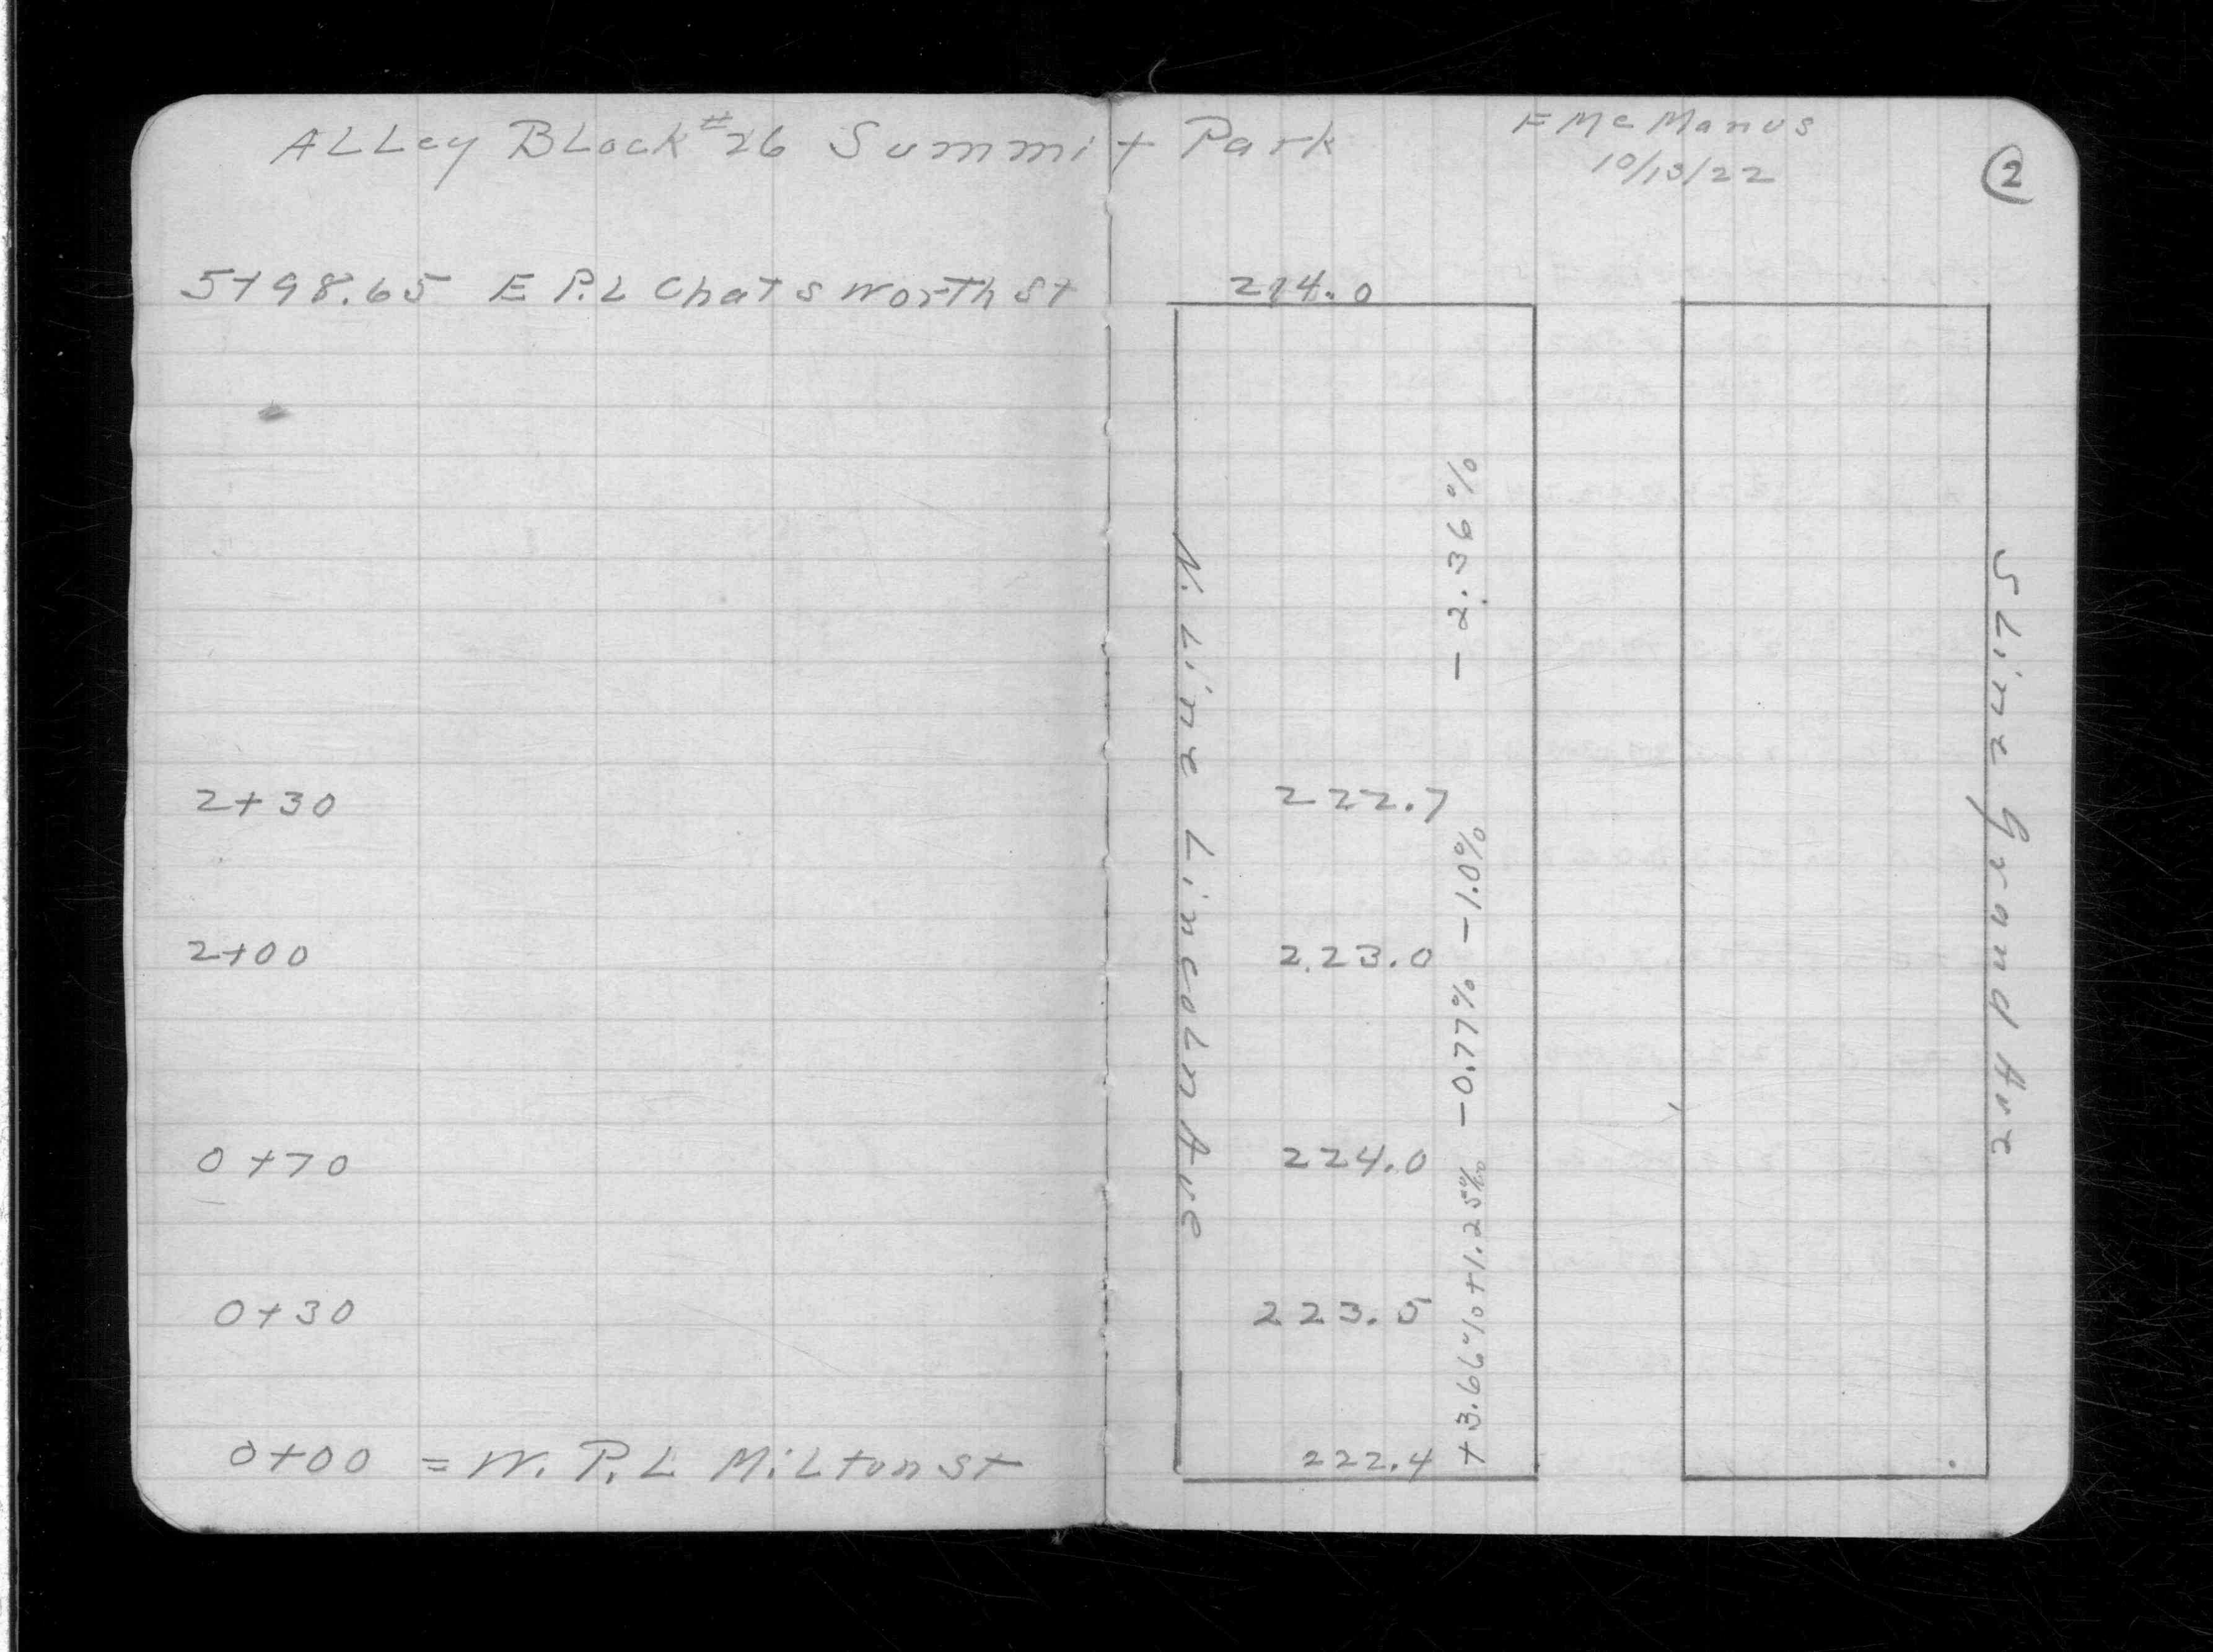 Alley Block #26 Summit Park
F McManus
10/13/22
2
5+98.65 E P.L Chatsworth St
214.0
2+30
222.7
2+00
223.0
0+70
224.0
0+30
223.5
0+00 = W. P.L Milton St
222.4
N. Line Lincoln Ave
+3.66% +1.25% -0.77% -1.0% -2.36%
S Line Grand Ave